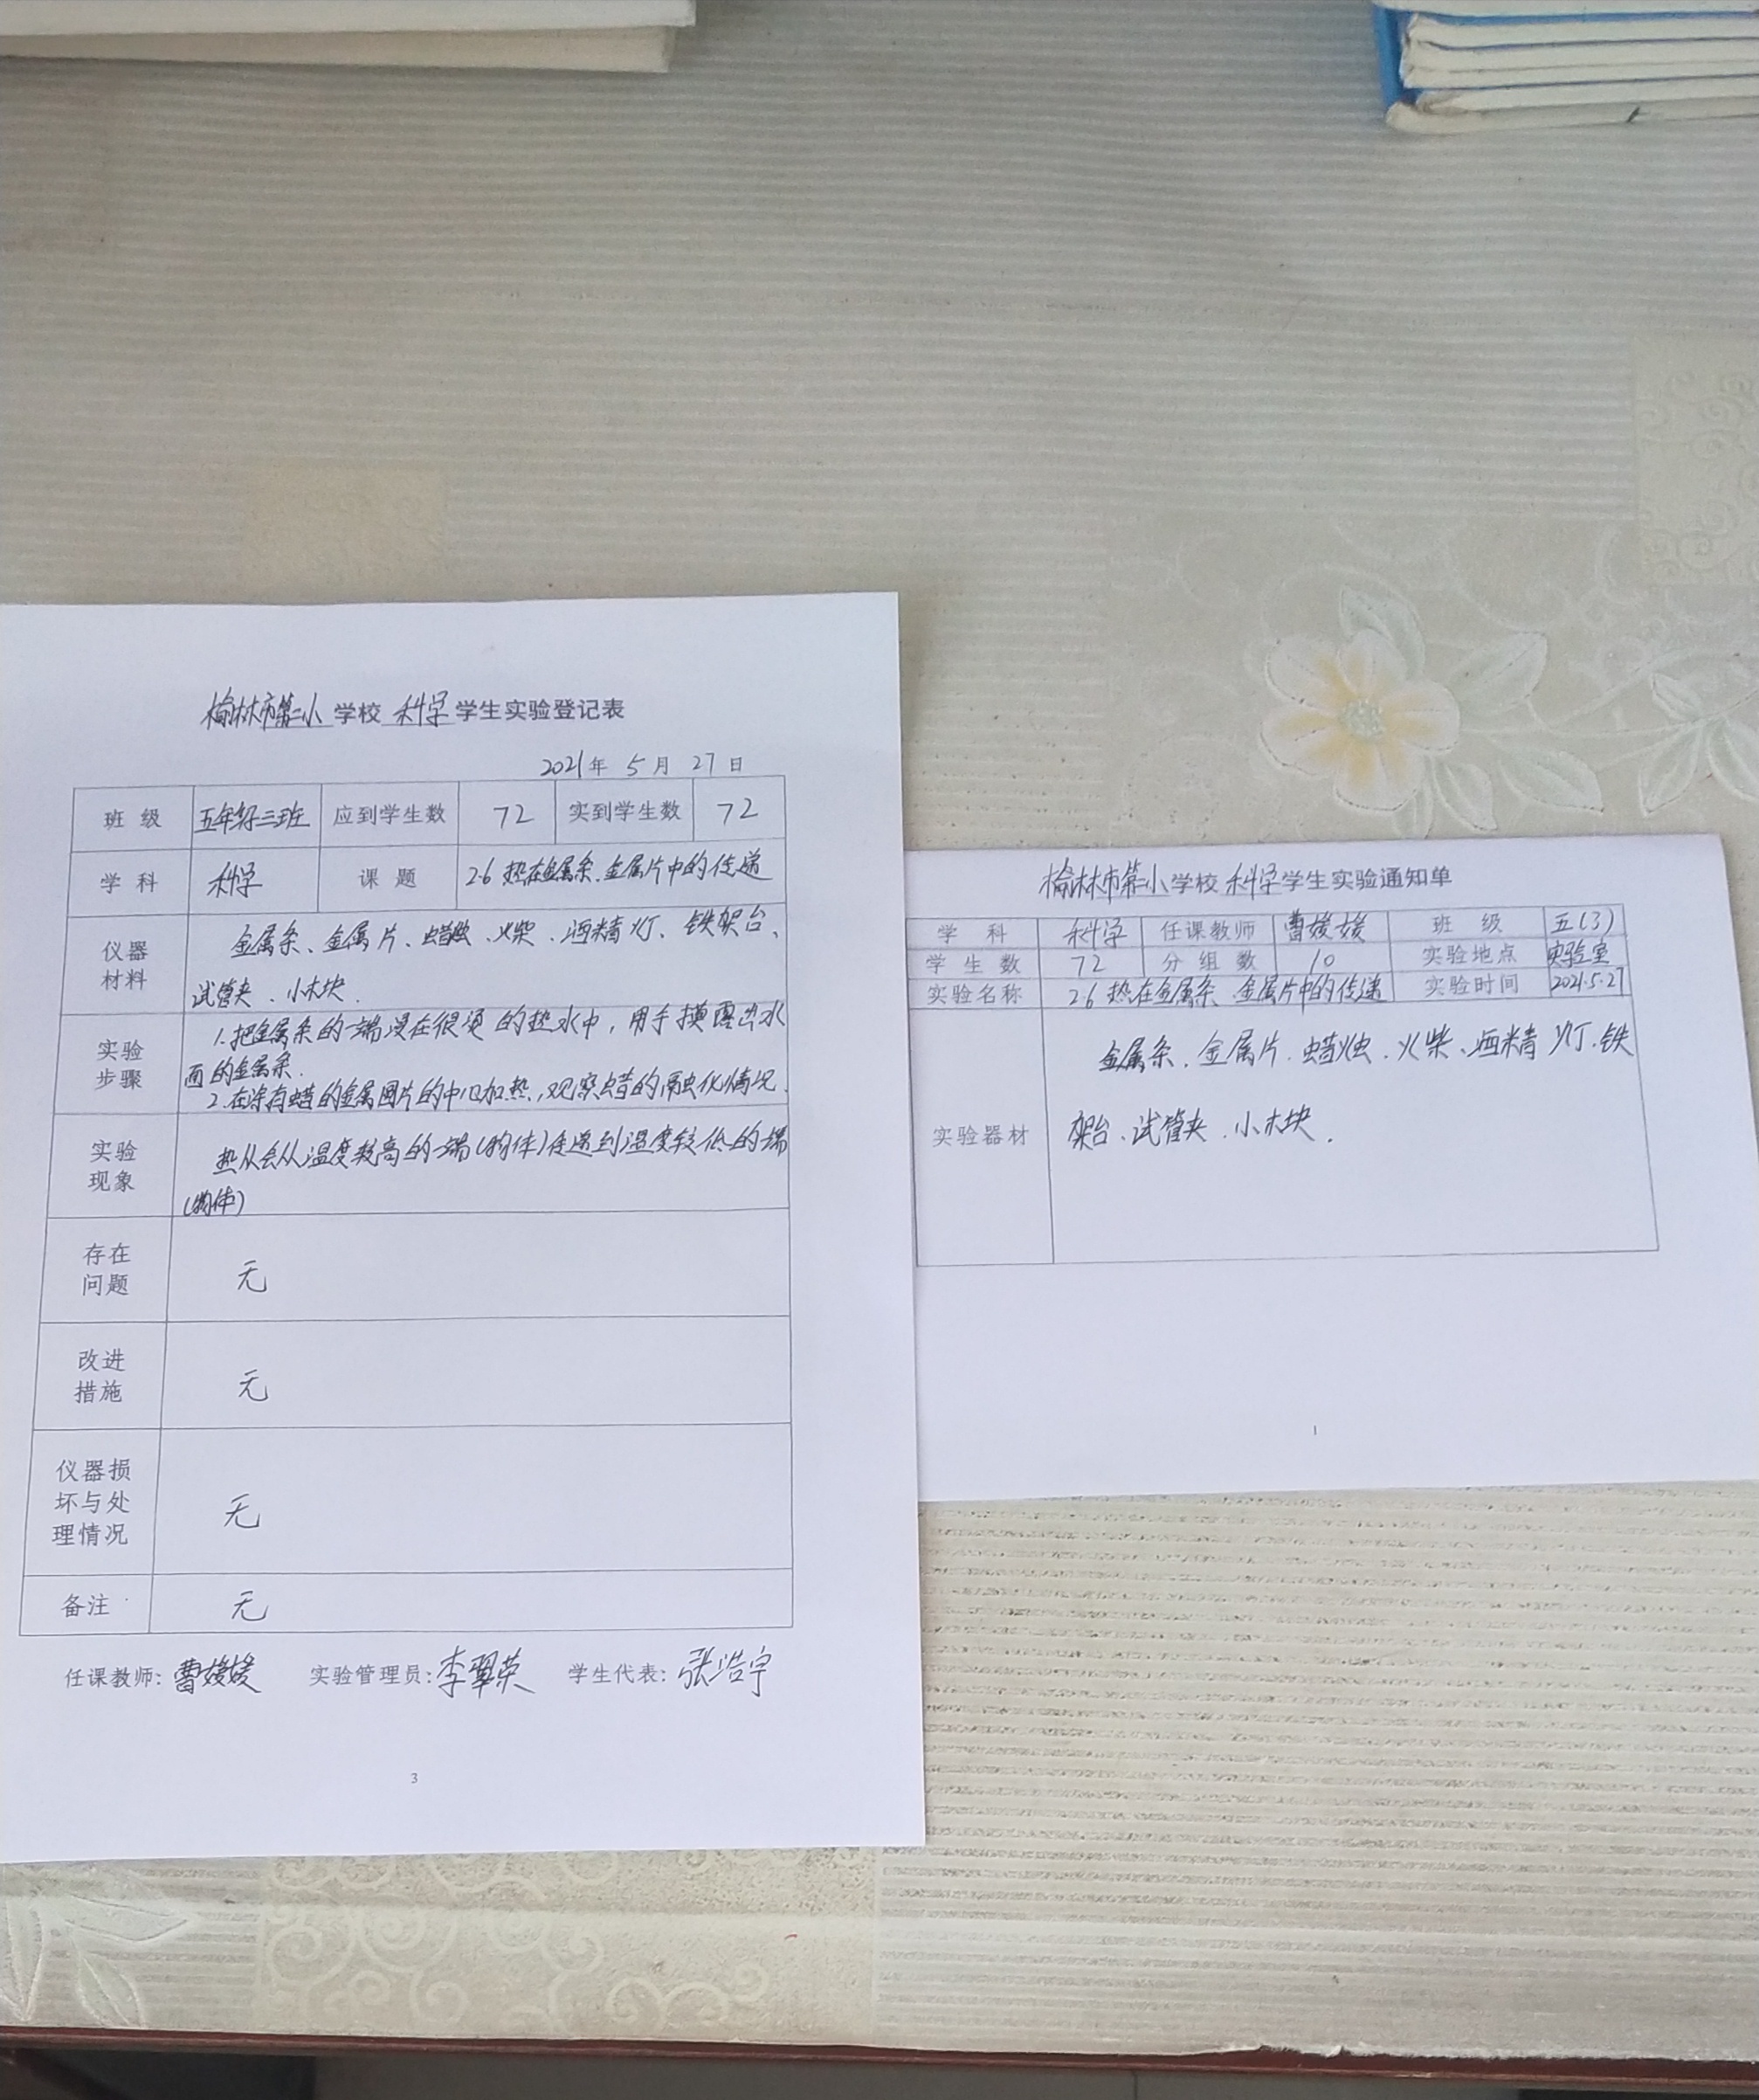 榆林市第二小学校 科学 学生实验登记表
2021年 5月 27日
班级 五年级三班 应到学生数 72 实到学生数 72
学科 科学 课题 2.6 热在金属条、金属片中的传递
仪器材料 金属条、金属片、蜡烛、火柴、酒精灯、铁架台、
试管夹、小木块.
实验步骤 1.把金属条的一端浸在很烫的热水中,用手摸露出水
面的金属条.
2.在涂有蜡的金属圆片的中心加热,观察蜡的融化情况.
实验现象 热从会从温度较高的一端(物体)传递到温度较低的一端
(物体)
存在问题 无
改进措施 无
仪器损坏与处理情况 无
备注 无
任课教师: 曹媛媛 实验管理员: 李翠荣 学生代表: 张浩宇
3
榆林市第二小学校 科学 学生实验通知单
学科 科学 任课教师 曹媛媛 班级 五(3)
学生数 72 分组数 10 实验地点 实验室
实验名称 2.6 热在金属条、金属片中的传递 实验时间 2021.5.27
实验器材 金属条、金属片、蜡烛、火柴、酒精灯、铁
架台、试管夹、小木块.
1